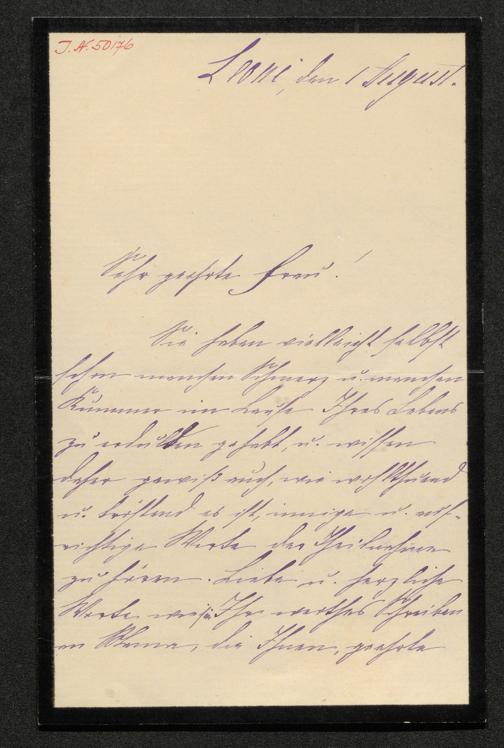 J. N. 50176
Leoni, den 1 August.
Sehr geehrte Frau!
Sie haben vielleicht selbst
schon manchen Schmerz u. manchen
Kummer im Laufe Ihres Lebens
zu erdulden gehabt, u. wissen
daher gewiß auch, wie wohlthuend
u. tröstend es ist, innige u. auf-
richtige Worte der Theilnahme
zu hören. Liebe u. herzliche
Worte, wie sie Ihr werthes Schreiben
an Mama, die Ihnen, geehrte